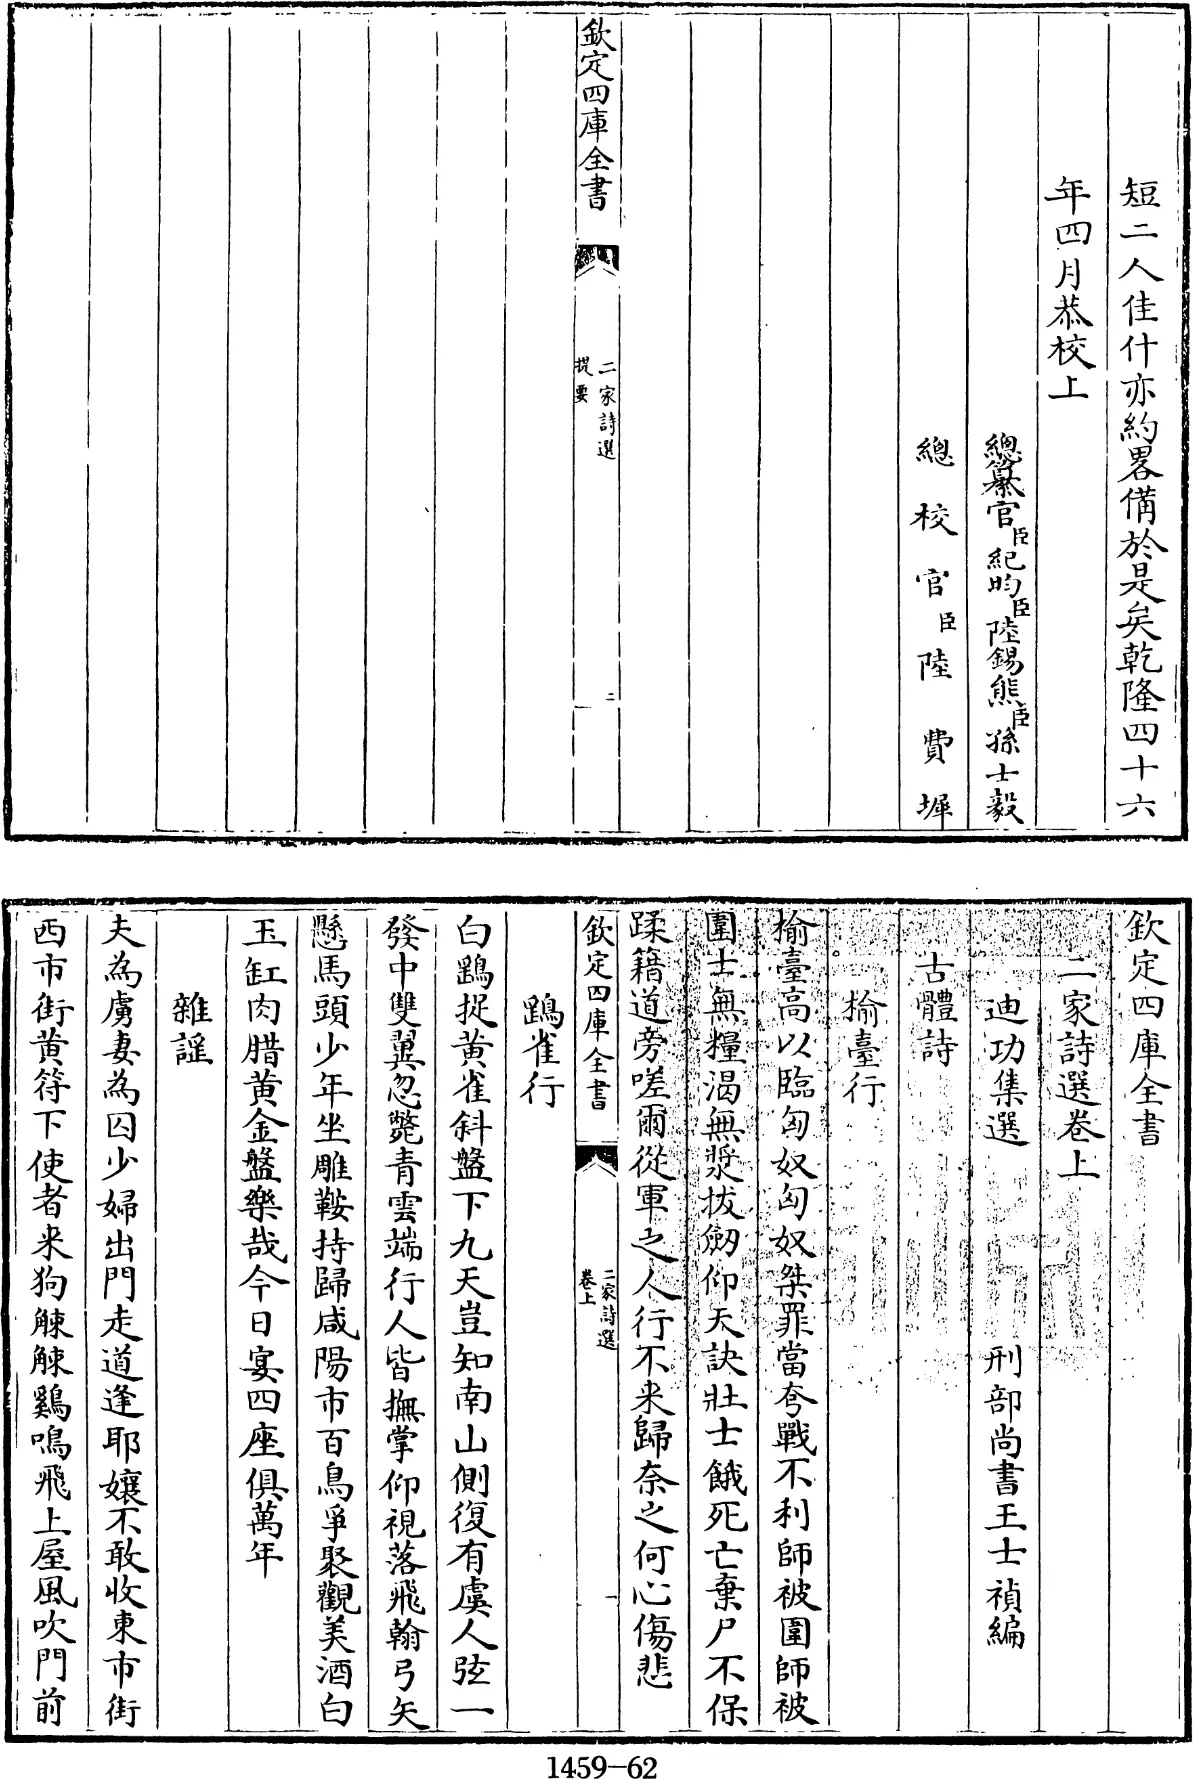 短二人佳什亦約畧備於是矣乾隆四十六
年四月恭校上
總纂官臣紀昀臣陸錫熊臣孫士毅
總校官臣陸費墀
欽定四庫全書
二家詩選
提要
二
欽定四庫全書
二家詩選卷上
迪功集選 刑部尚書王士禎編
古體詩
榆臺行
榆臺高以臨匈奴匈奴桀罪當夸戰不利師被圍師被
圍士無糧渴無漿拔劒仰天訣壯士餓死亡棄尸不保
蹂籍道旁嗟爾從軍之人行不来歸奈之何心傷悲
欽定四庫全書
二家詩選
卷上
一
鷂雀行
白鷂捉黄雀斜盤下九天豈知南山側復有虞人弦一
發中雙翼忽斃青雲端行人皆撫掌仰視落飛翰弓矢
懸馬頭少年坐雕鞍持歸咸陽市百鳥爭聚觀美酒白
玉缸肉腊黄金盤樂哉今日宴四座俱萬年
雜謡
夫為虜妻為囚少婦出門走道逢耶孃不敢收東市街
西市街黄符下使者来狗觫觫鷄鳴飛上屋風吹門前
1459-62